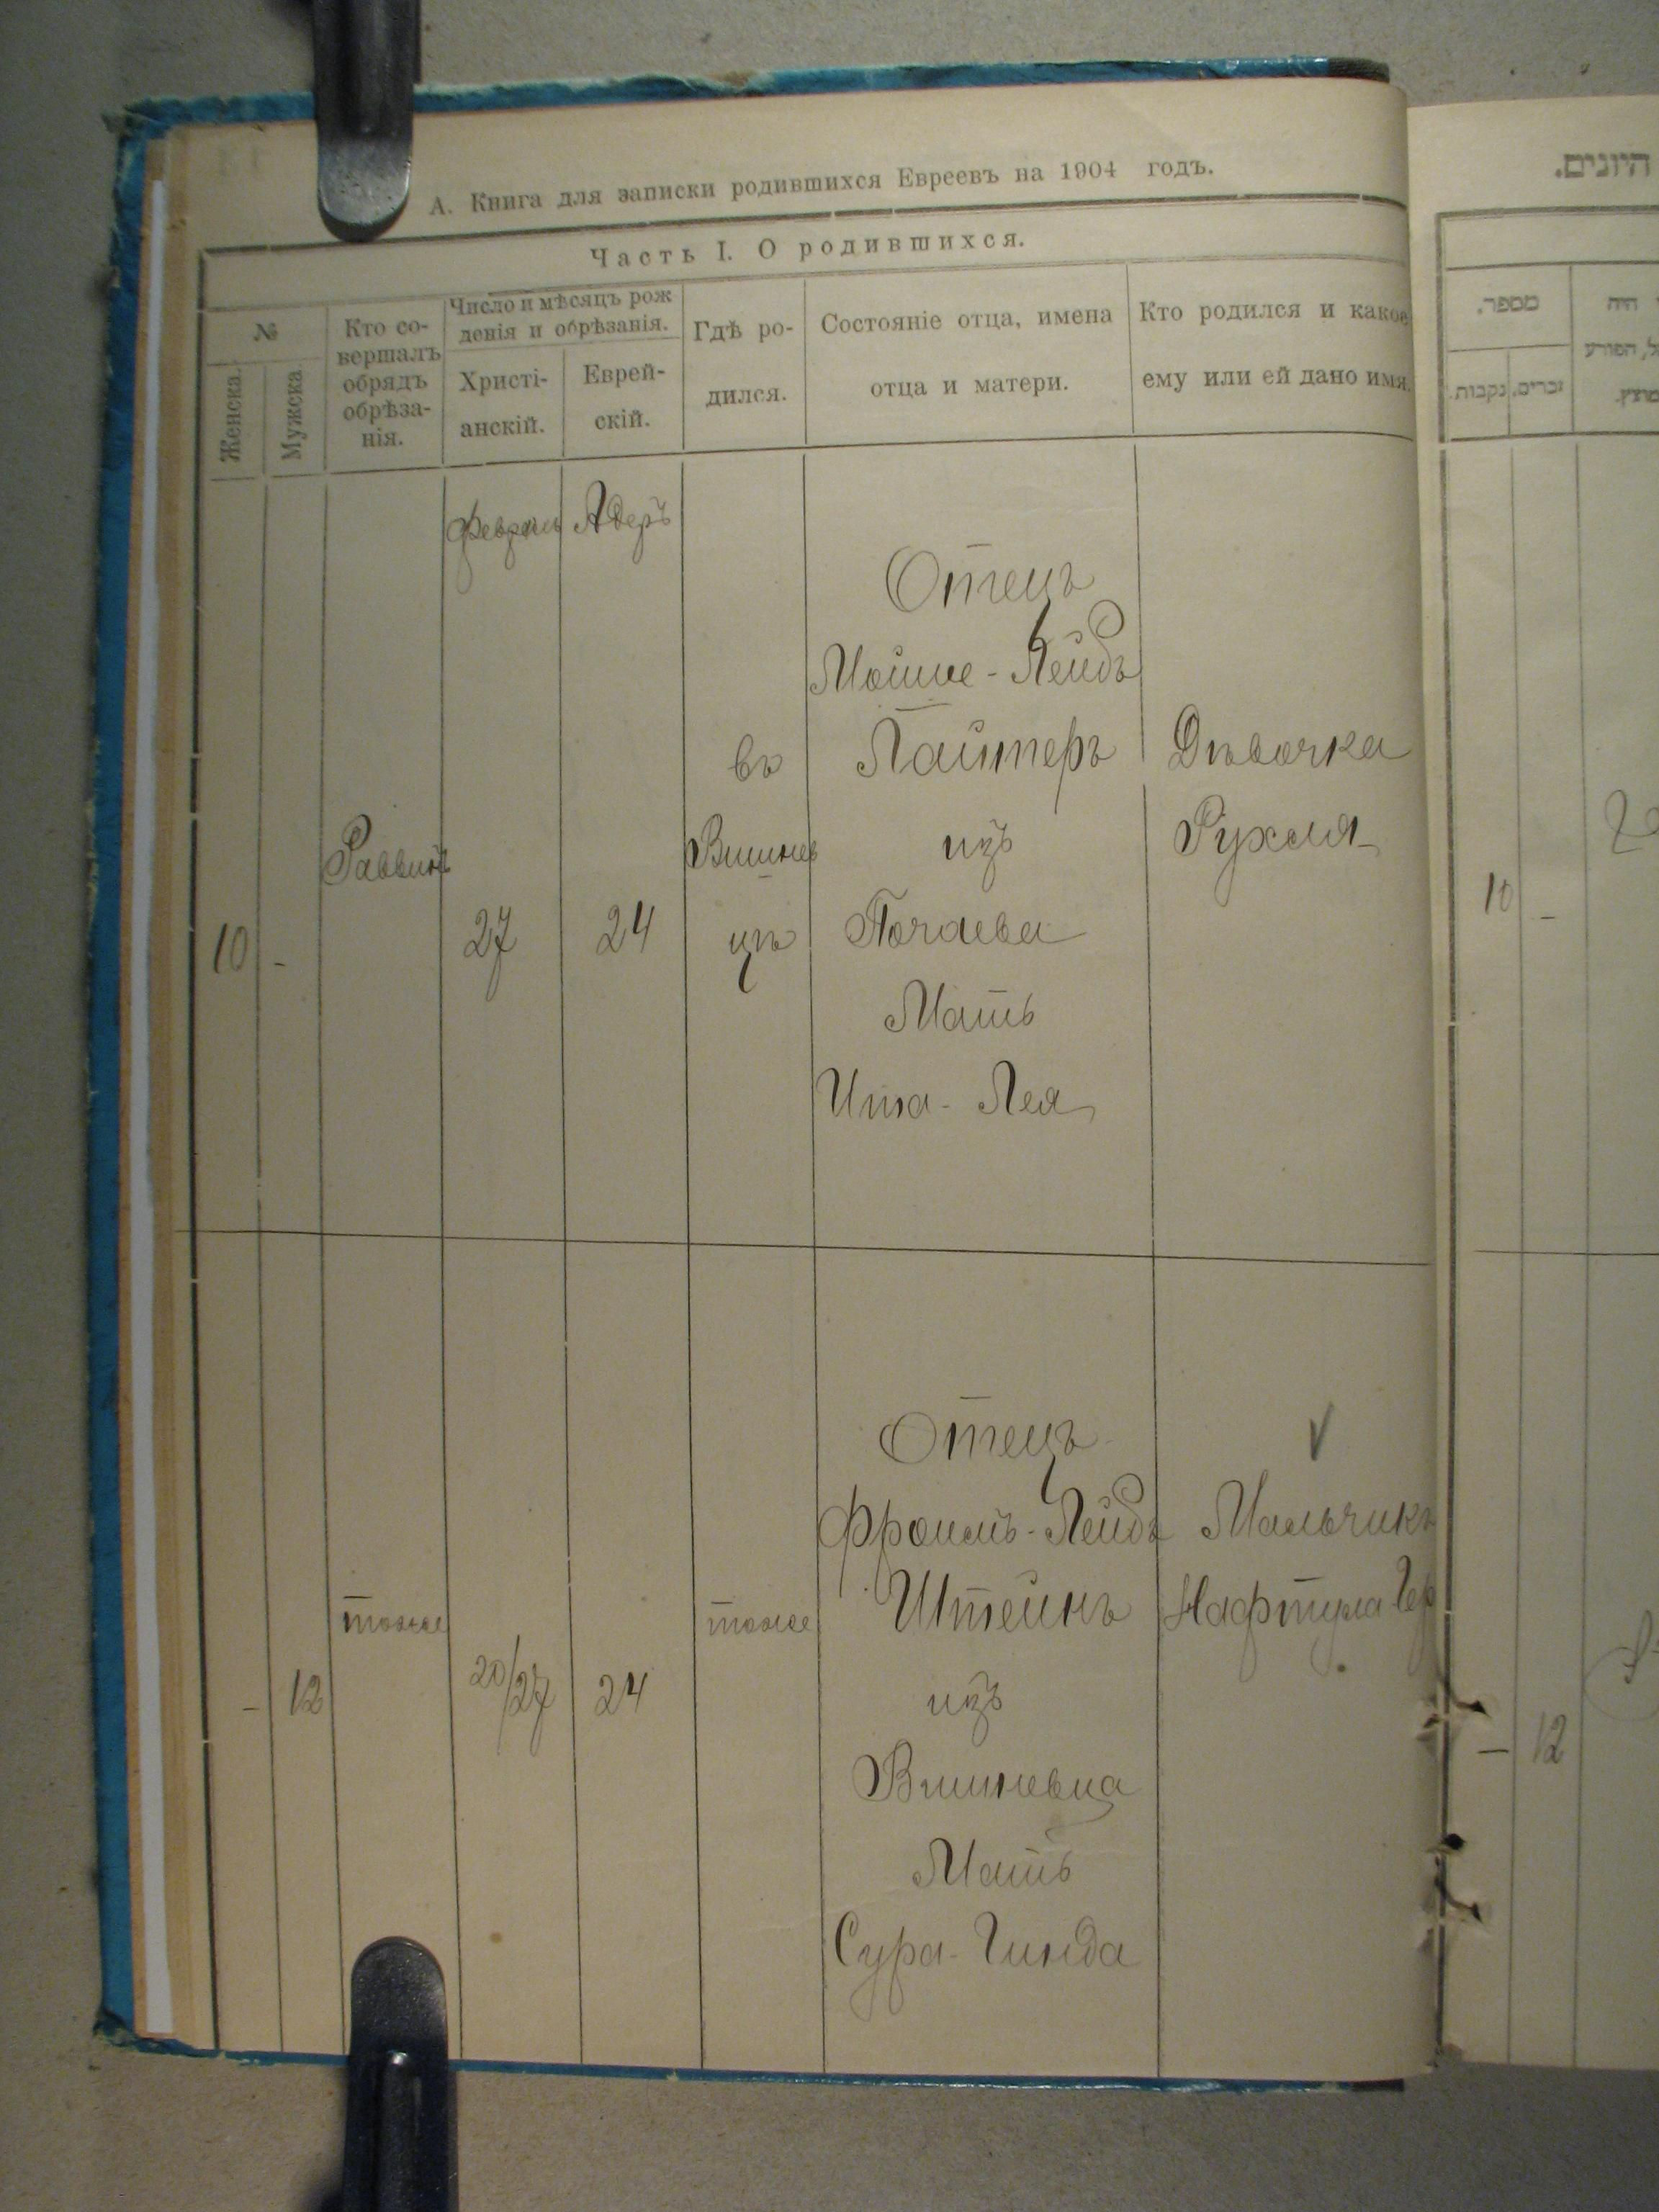 А. Книга для записки родившихся Евреевъ на 1904 годъ.
Часть I. О родившихся.
№
Женска.
Мужска.
Кто со-
вершалъ
обрядъ
обрѣза-
нія.
Число и мѣсяцъ рож
денія и обрѣзанія.
Христі-
анскій.
Еврей-
скій.
Гдѣ ро-
дился.
Состояніе отца, имена
отца и матери.
Кто родился и какое
ему или ей дано имя.
Февраль
Адеръ
10
-
Раввинъ
27
24
въ
Вишнев
цѣ
Отецъ
Мойше-Лейбъ
Пайтеръ
изъ
Почаева
Мать
Ита-Лея
Дѣвочка
Рухля
-
12
тоже
20/27
24
тоже
Отецъ
Фроимъ-Лейбъ
Штейнъ
изъ
Вишневца
Мать
Сура-Гинда
V
Мальчикъ
Нафтула Гер
היונים.
מספר.
נקבות.
זכרים.
היה
הפורע
10
-
-
12